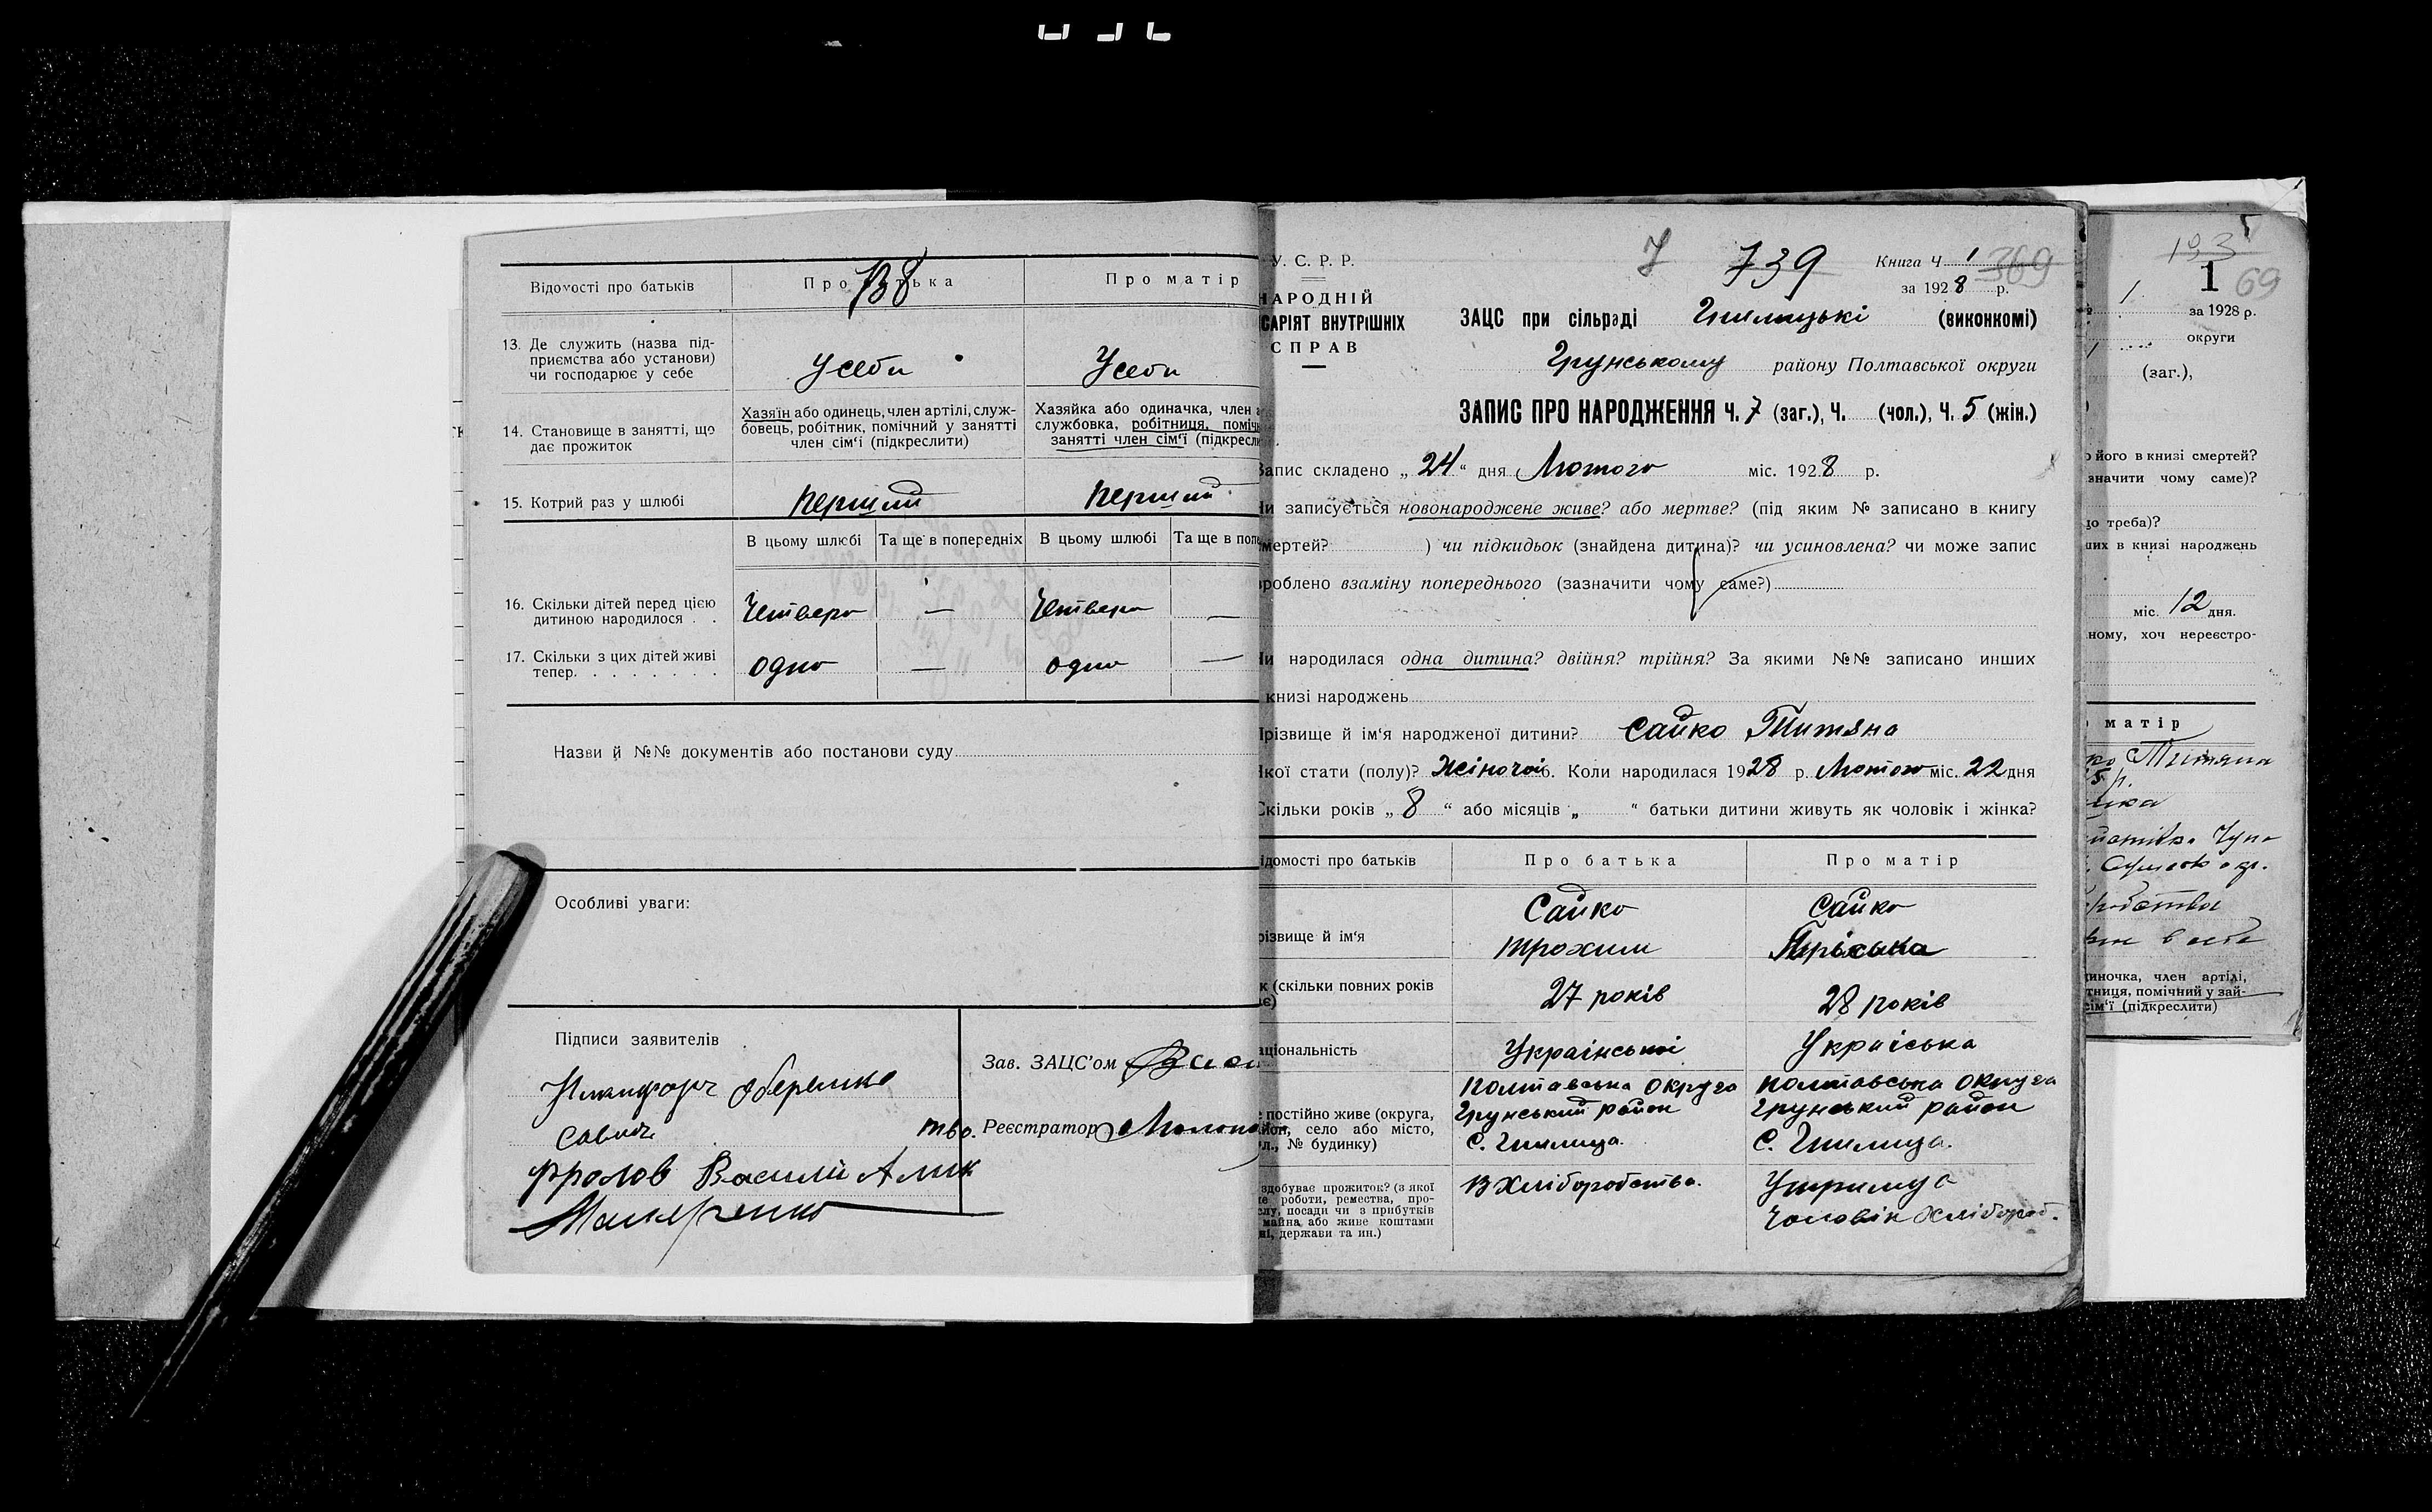 738
Відомості про батьків
Про батька
Про матір
13. Де служить (назва під-
приємства або установи)
чи господарює у себе
Усеби
Усеби
14. Становище в занятті, що
дає прожиток
Хазяїн або одинець, член артілі, служ-
бовець, робітник, помічний у занятті
член сім'ї (підкреслити)
Хазяйка або одиначка, член
службовка, робітниця, поміч
занятті член сім'ї (підкресли
15. Котрий раз у шлюбі
первший
первший
В цьому шлюбі
Та ще в попередніх
В цьому шлюбі
Та ще в попе
16. Скільки дітей перед цією
дитиною народилося . .
Четверо
—
Четверо
—
17. Скільки з цих дітей живі
тепер. . . . . . . .
одно
—
одно
—
Назви й №№ документів або постанови суду
Особливі уваги:
Підписи заявителів
Зав. ЗАЦС'ом
Реєстратор
тво.
Фролов Василій
У. С. Р. Р.
НАРОДНІЙ
САРІЯТ ВНУТРІШНІХ
СПРАВ
7
739
Книга Ч. 1
369
за 1928 р.
ЗАЦС при сільраді Гнилицькі (виконкомі)
Грунському району Полтавської округи
ЗАПИС ПРО НАРОДЖЕННЯ Ч. 7 (заг.), Ч. (чол.), Ч. 5 (жін.)
Запис складено „ 24 “ дня Лютого міс. 1928 р.
Чи записується новонароджене живе? або мертве? (під яким № записано в книгу
мертей? ) чи підкидьок (знайдена дитина)? чи усиновлена? чи може запис
зроблено взаміну попереднього (зазначити чому саме?)
Чи народилася одна дитина? двійня? трійня? За якими №№ записано инших
книзі народжень
Прізвище й ім'я народженої дитини? Сайко Титяна
Якої стати (полу)? Жіночої 6. Коли народилася 1928 р. Лютого міс. 22 дня
Скільки років „ 8 “ або місяців „ “ батьки дитини живуть як чоловік і жінка?
ідомості про батьків
Про батька
Про матір
різвище й ім'я
Сайко
Трохим
Сайко
Пріська
к (скільки повних років
є)
27 років
28 років
аціональність
Української
Україська
е постійно живе (округа,
йон, село або місто,
л., № будинку)
Полтавська Округа
Грунський район
С. Гнилица.
Полтавська Округа
Грунський район
С. Гнилица.
здобуває прожиток? (з якої
е роботи, ремества, про-
слу, посади чи з прибутків
майна, або живе коштами
ні, держави та ин.)
В Хліборобства.
Утримує
Чоловік Хлібороб.
193
1
69
1
за 1928 р.
округи
(заг.),
о його в книзі смертей?
значити чому саме)?
що треба)?
ших в книзі народжень
міс. 12 дня.
ному, хоч нереєстро-
о матір
ко Титяна
5 р.
диночка, член артілі,
тниця, помічний у зай-
сім'ї (підкреслити)